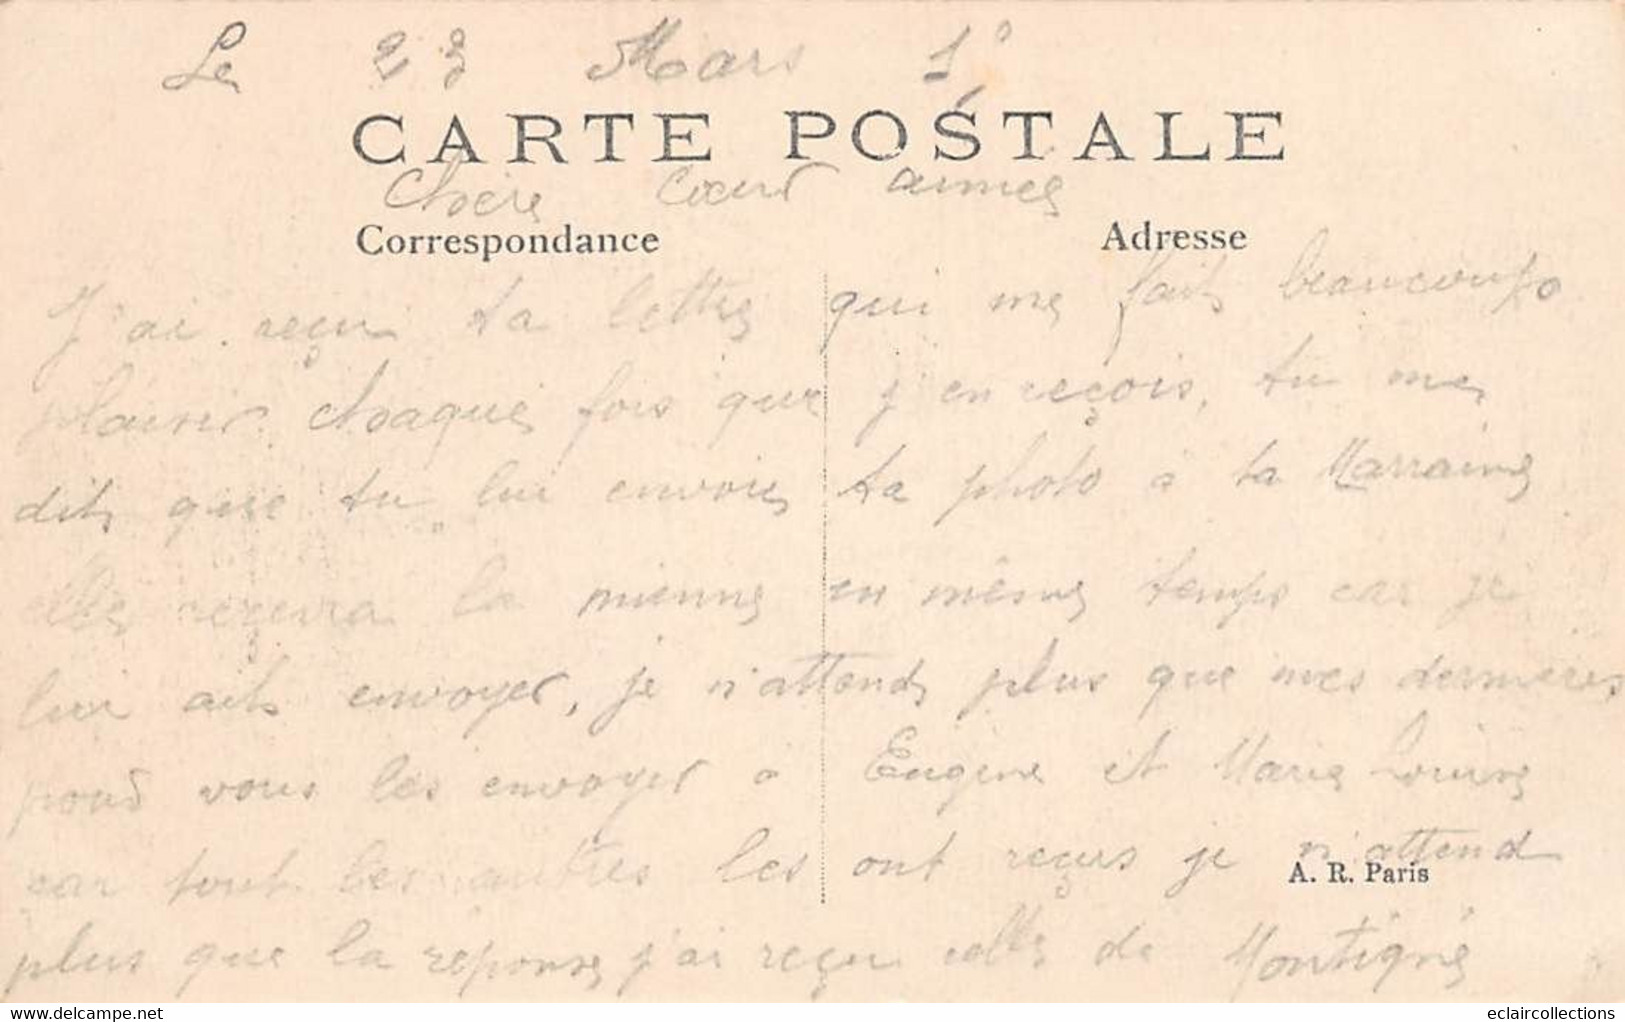 Le 23 Mars 1°
CARTE POSTALE
Chère Cœur aimes
Correspondance
Adresse
J'ai reçu ta lettre qui me fait beaucoups
plaisir chaque fois que j'en reçois, tu me
dits que tu lui envois ta photo à ta Marraine
elle recevra la mienne en même temps car je
lui aits envoyer, je n'attends plus que mes dernières
pour vous les envoyer à Eugène et Marie Louise
car tout les autres les ont reçus je n'attend
A. R. Paris
plus que la réponse j'ai reçu celle de Montigné
delcampe.net
eclaircollections